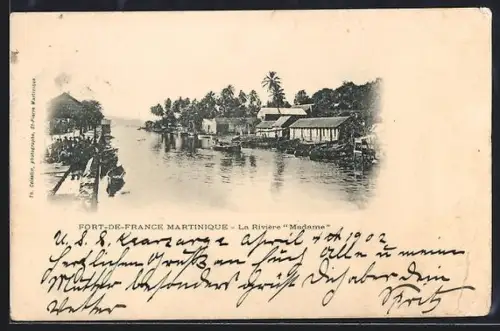 Ph. Celestin, photographe, St-Pierre Martinique
FORT-DE-FRANCE MARTINIQUE - La Rivière "Madame"
U. S. S. Kearsarge April 4th 1902
Herzlichen Gruß an Euch Alle u meine
Mutter besonders grüßt Dich aber dein
Vetter Fritz